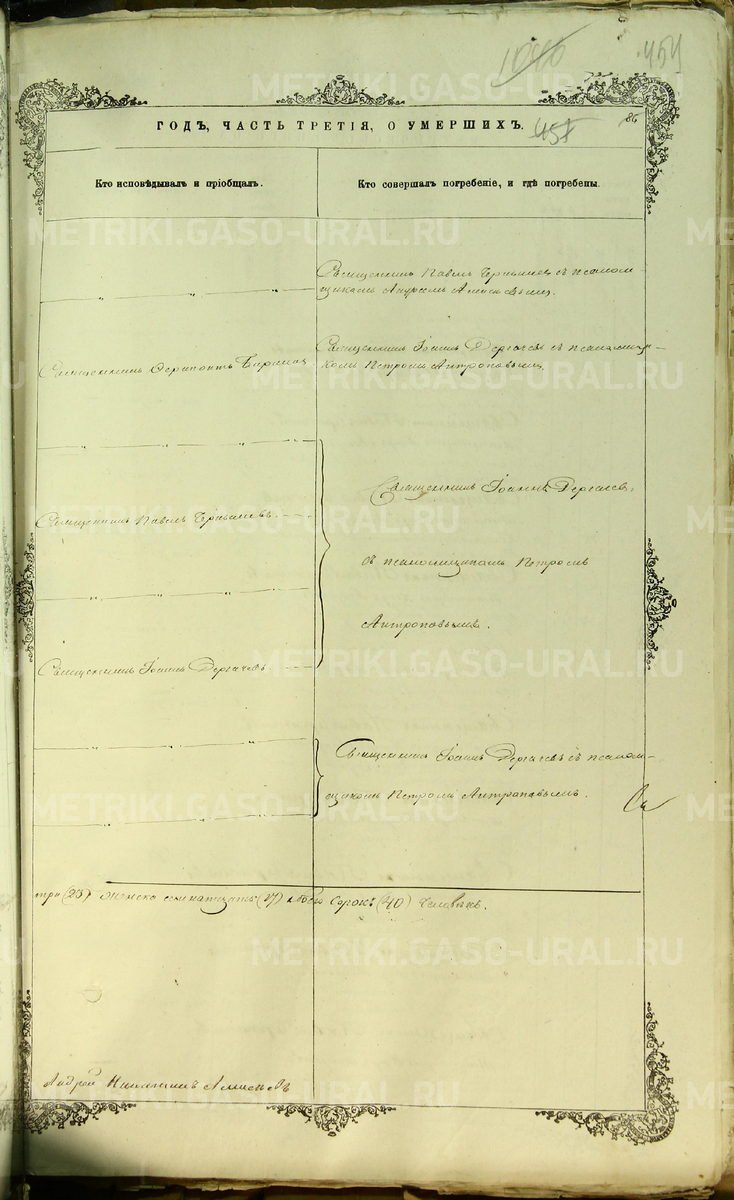 1040
454
86
ГОДЪ, ЧАСТЬ ТРЕТІЯ, О УМЕРШИХЪ.
457
Кто исповѣдывалъ и пріобщалъ.
Кто совершалъ погребеніе, и гдѣ погребены.
Священникъ Павелъ съ псалом-
щикомъ Андреемъ
Священникъ Іоаннъ Дергачевъ съ псаломщи-
комъ Петромъ Антроповымъ
Священникъ Ѳерапонтъ
Священникъ Іоаннъ Дергачевъ,
Священникъ Павелъ
съ псаломщикомъ Петромъ
Антроповымъ.
Священникъ Іоаннъ Дергачевъ.
Священникъ Іоаннъ Дергачевъ съ псалом-
щикомъ Петромъ Антроповымъ.
три (23) женска семнатцать (17) обоего сорокъ (40) человѣкъ.
Андрей
METRIKI.GASO-URAL.RU